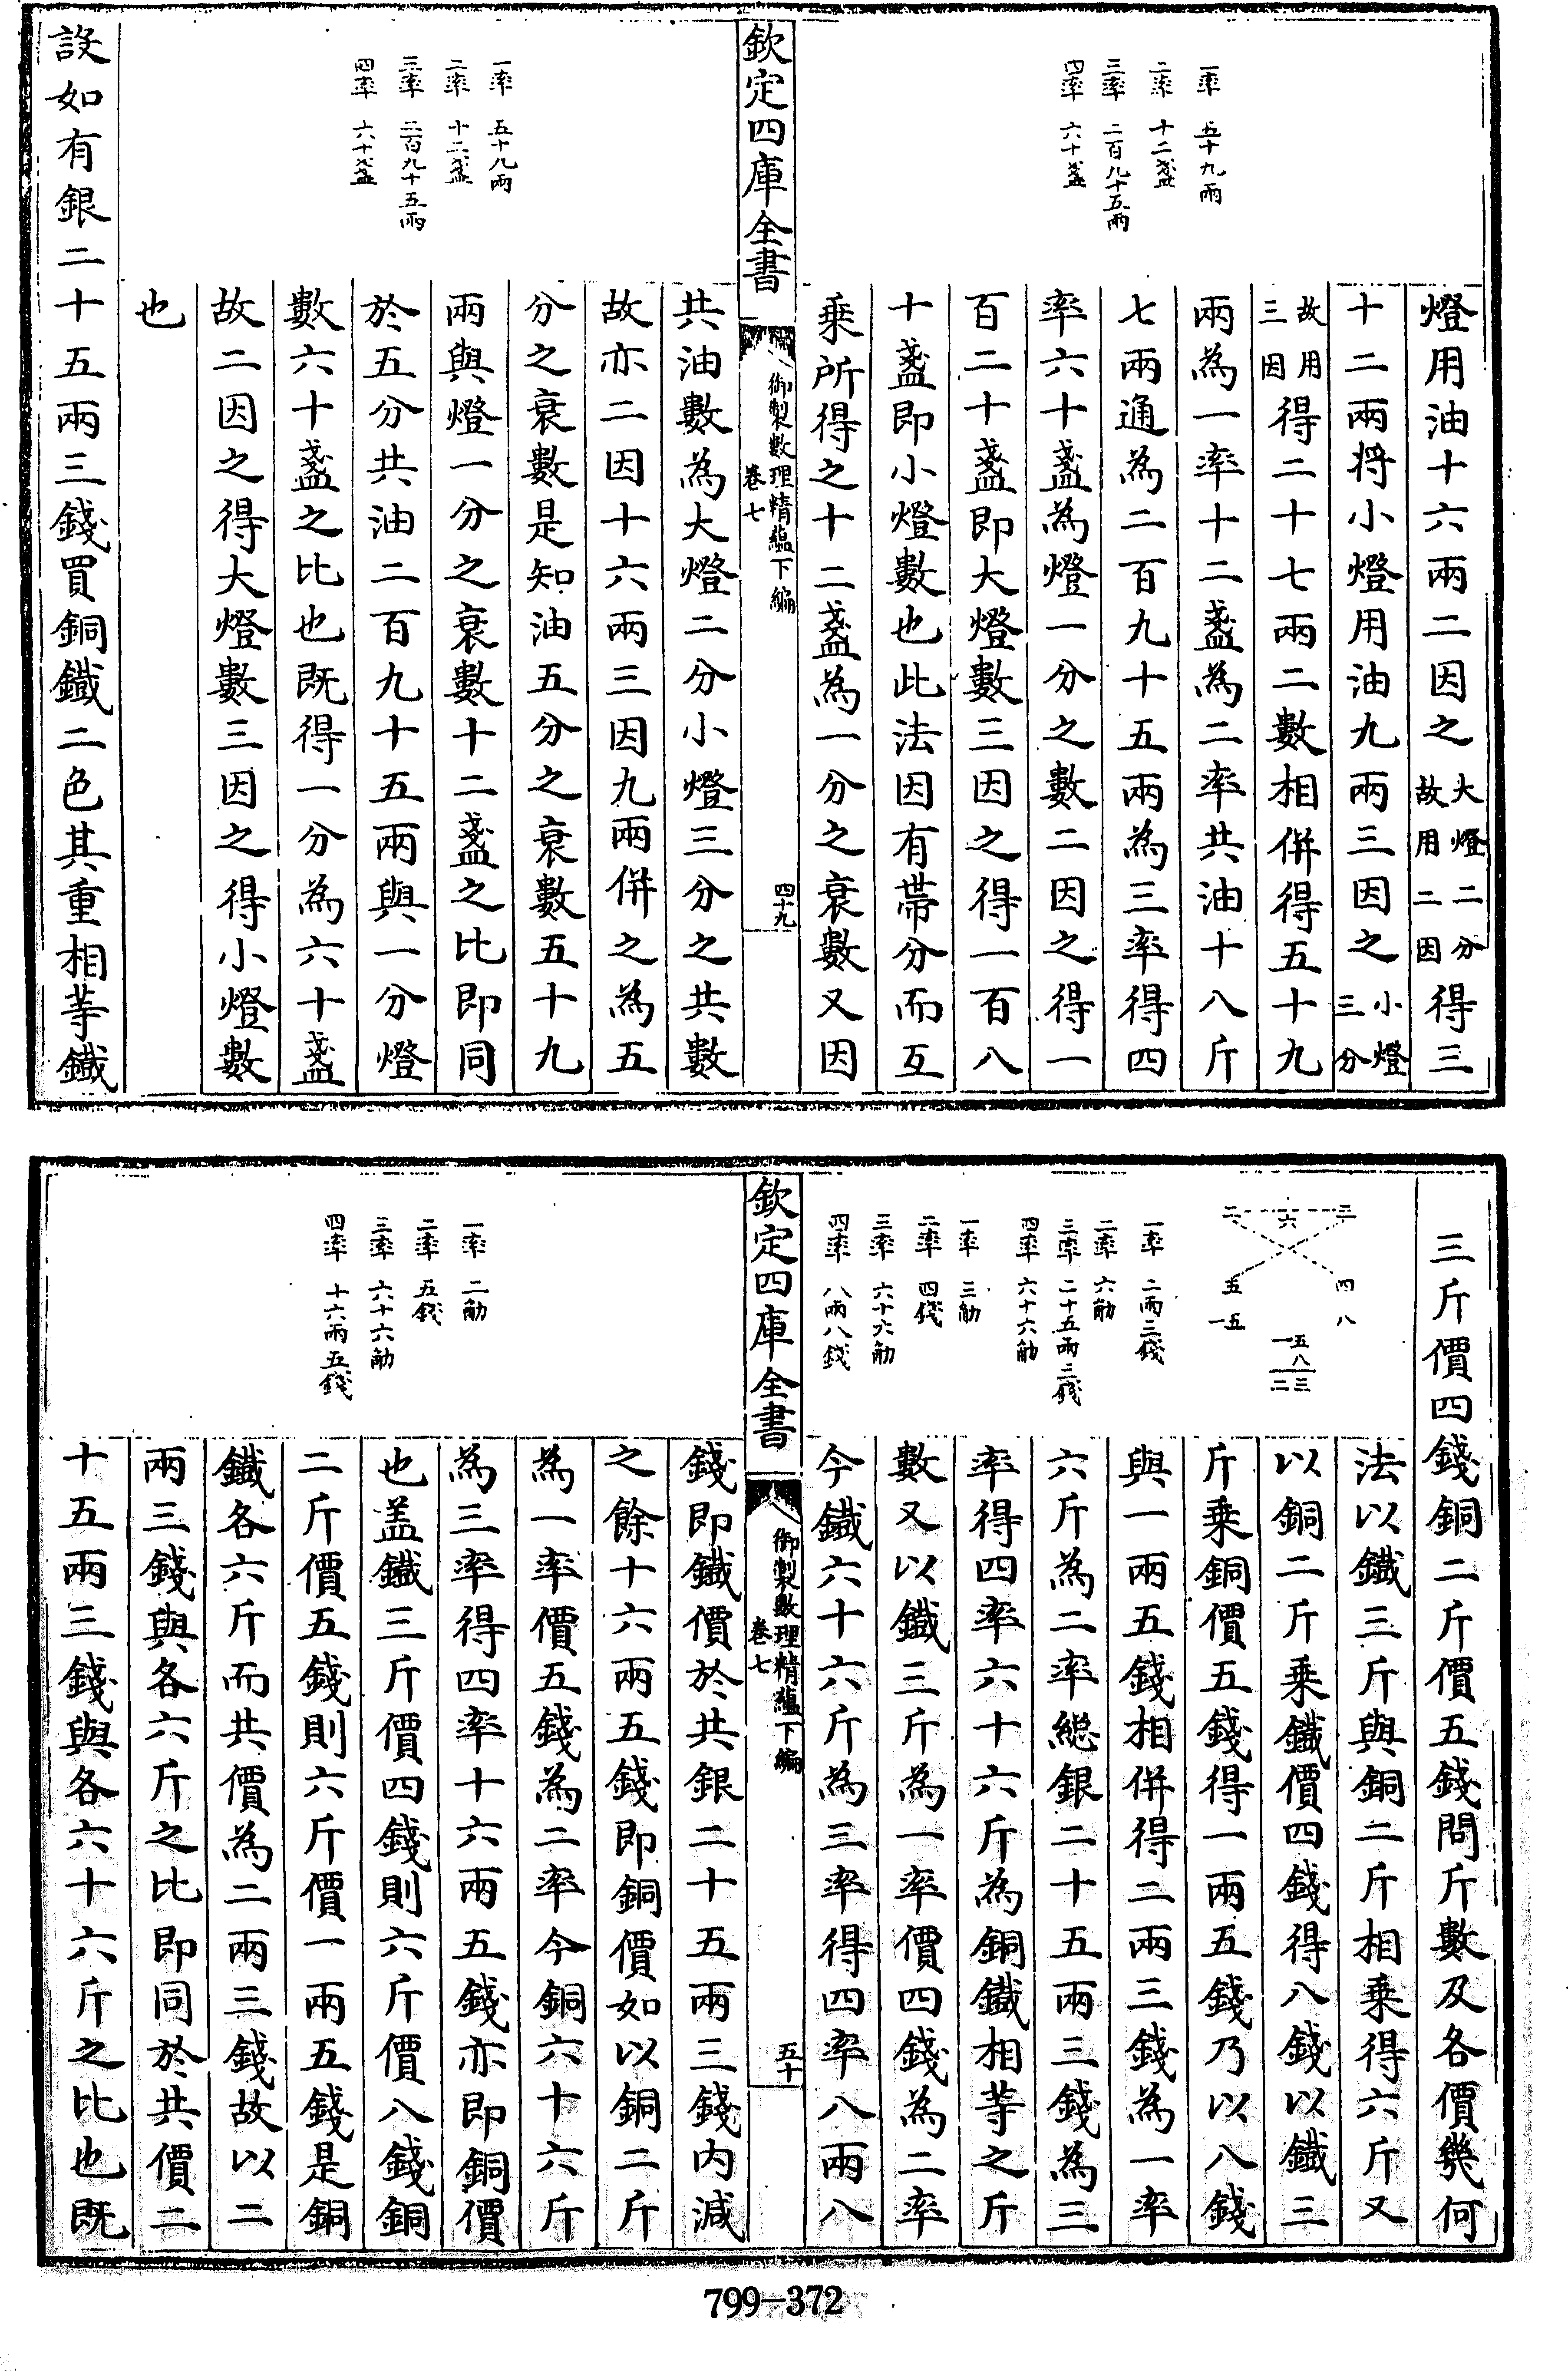 一率　五十九兩
二率　十二盞
三率　二百九十五兩
四率　六十盞
燈用油十六兩二因之大燈二分故用二因得三
十二兩将小燈用油九兩三因之小燈三分
故用三因得二十七兩二數相併得五十九
兩為一率十二盞為二率共油十八斤
七兩通為二百九十五兩為三率得四
率六十盞為燈一分之數二因之得一
百二十盞即大燈數三因之得一百八
十盞即小燈數也此法因有帶分而互
乗所得之十二盞為一分之衰數又因
欽定四庫全書
御製數理精藴下編
卷七
四十九
一率　五十九兩
二率　十二盞
三率　二百九十五兩
四率　六十盞
共油數為大燈二分小燈三分之共數
故亦二因十六兩三因九兩併之為五
分之衰數是知油五分之衰數五十九
兩與燈一分之衰數十二盞之比即同
於五分共油二百九十五兩與一分燈
數六十盞之比也既得一分為六十盞
故二因之得大燈數三因之得小燈數
也
設如有銀二十五兩三錢買銅鐵二色其重相等鐵
三斤價四錢銅二斤價五錢問斤數及各價幾何
三　六　二
四　五
八　一五
一五
八
二三
一率　二兩三錢
二率　六觔
三率　二十五兩三錢
四率　六十六觔
一率　三觔
二率　四錢
三率　六十六觔
四率　八兩八錢
法以鐵三斤與銅二斤相乗得六斤又
以銅二斤乗鐵價四錢得八錢以鐵三
斤乗銅價五錢得一兩五錢乃以八錢
與一兩五錢相併得二兩三錢為一率
六斤為二率總銀二十五兩三錢為三
率得四率六十六斤為銅鐵相等之斤
數又以鐵三斤為一率價四錢為二率
今鐵六十六斤為三率得四率八兩八
欽定四庫全書
御製數理精藴下編
卷七
五十
一率　二觔
二率　五錢
三率　六十六觔
四率　十六兩五錢
錢即鐵價於共銀二十五兩三錢内減
之餘十六兩五錢即銅價如以銅二斤
為一率價五錢為二率今銅六十六斤
為三率得四率十六兩五錢亦即銅價
也盖鐵三斤價四錢則六斤價八錢銅
二斤價五錢則六斤價一兩五錢是銅
鐵各六斤而共價為二兩三錢故以二
兩三錢與各六斤之比即同於共價二
十五兩三錢與各六十六斤之比也既
799-372